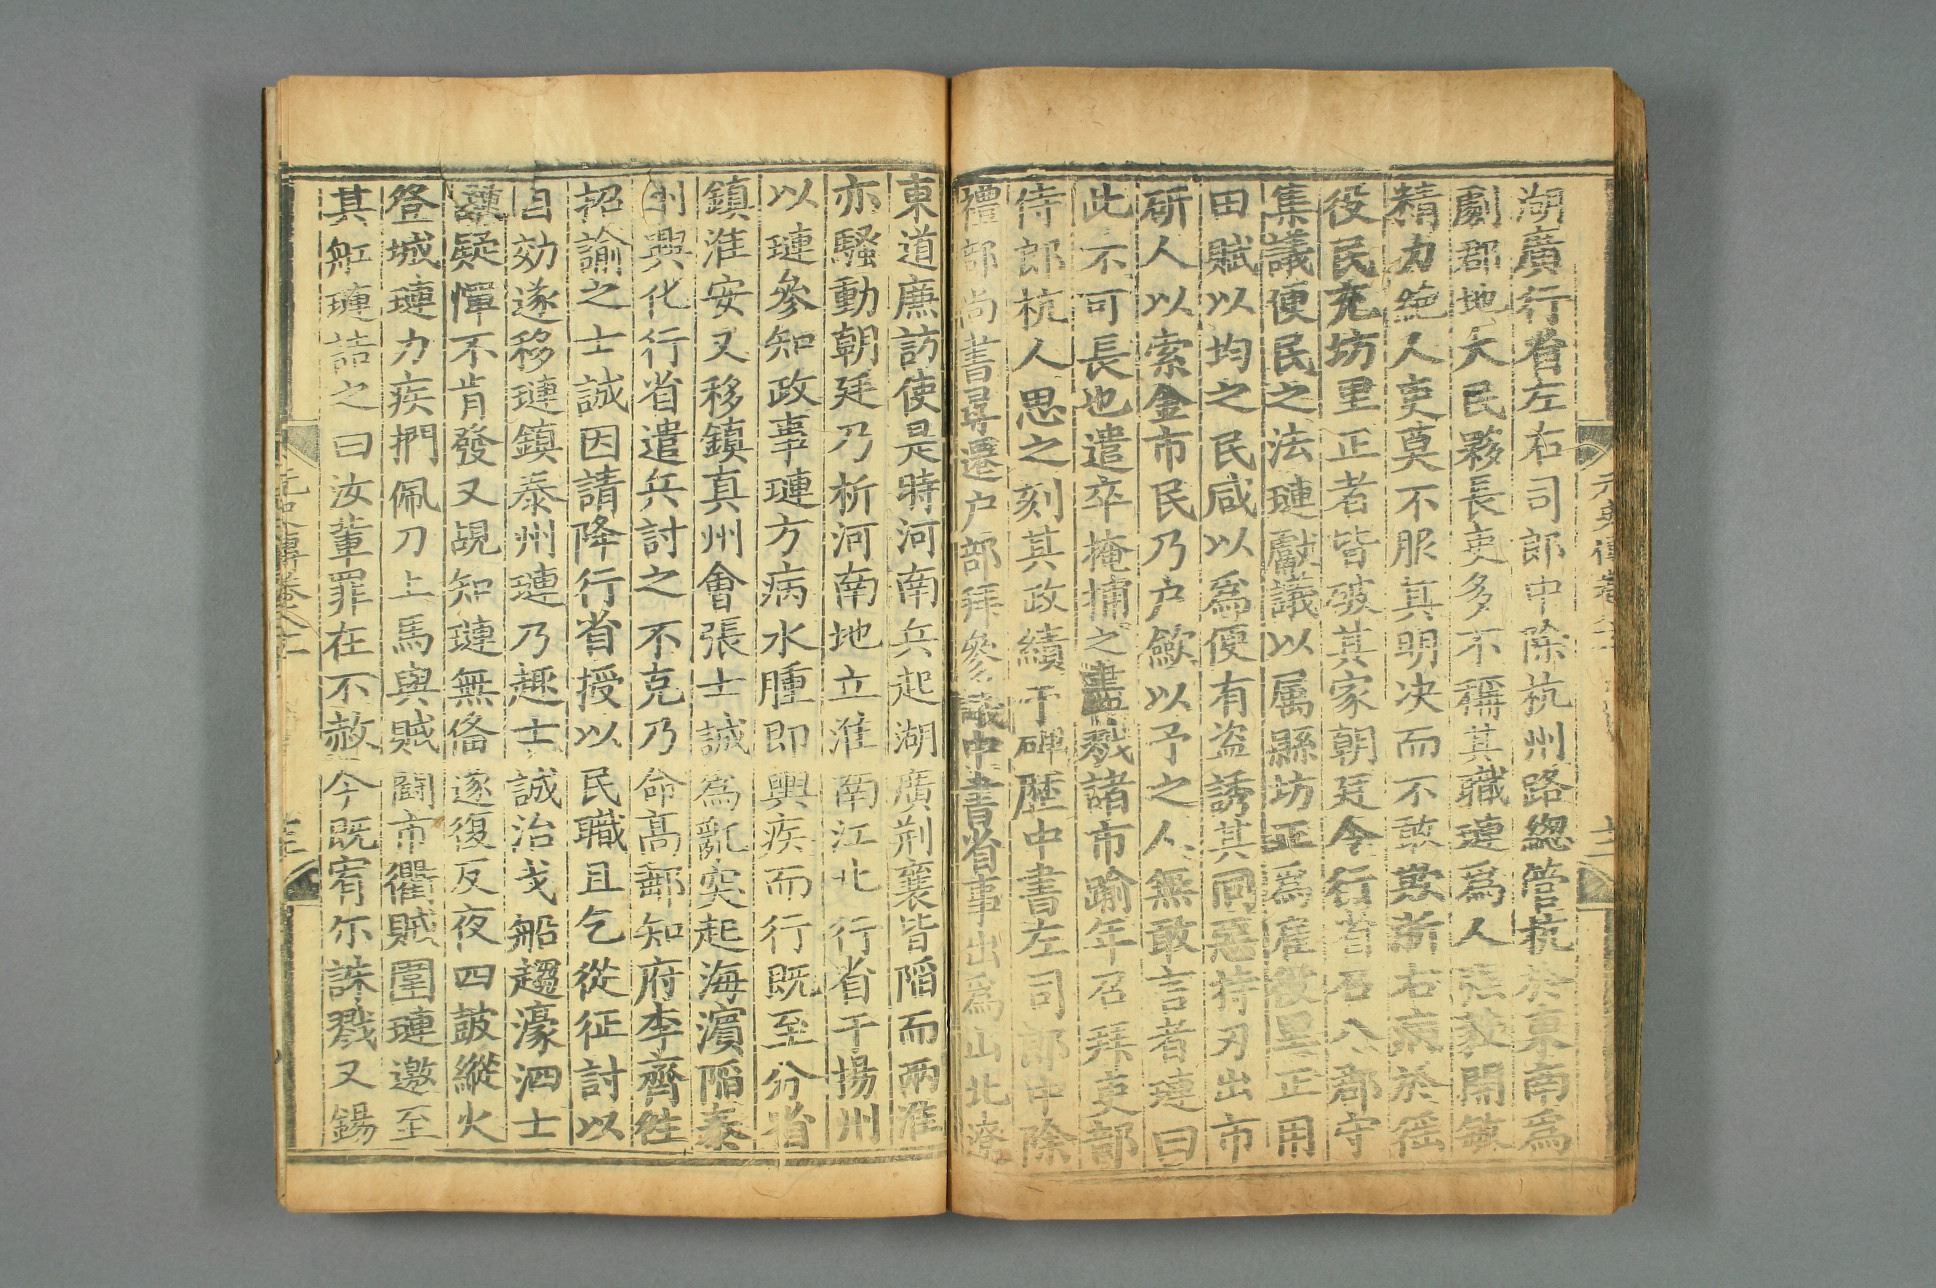 湖廣行省左右司郎中除杭州路緫管杭於東南爲
劇郡地大民夥長吏多不稱其職璉爲人強毅開敏
精力絶人吏莫不服其明决而不敢欺浙右病於徭
役民充坊里正者皆破其家朝廷令行省召八郡守
集議便民之法璉獻議以屬縣坊正爲雇役里正用
田賦以均之民咸以爲便有盗誘其同惡持刃出市
斫人以索金市民乃户歛以予之人無敢言者璉曰
此不可長也遣卒掩捕之盡戮諸市踰年召拜吏部
侍郎杭人思之刻其政績于碑歷中書左司郎中除
禮部尚書尋遷户部拜參議中書省事出爲山北遼
東道廉訪使是時河南兵起湖廣荆襄皆陷而兩淮
亦騷動朝廷乃析河南地立淮南江北行省于揚州
以璉參知政事璉方病水腫即輿疾而行既至分省
鎮淮安又移鎮真州會張士誠爲亂突起海濱陷泰
州興化行省遣兵討之不克乃命髙郵知府李齊徃
招諭之士誠因請降行省授以民職且乞從征討以
自効遂移璉鎮泰州璉乃趣士誠治戈船趨濠泗士
誠疑憚不肯發又覘知璉無俻遂復反夜四鼓縱火
登城璉力疾捫佩刀上馬與賊鬬市衢賊圍璉邀至
其舡璉詰之曰汝輩罪在不赦今既宥尓誅戮又錫